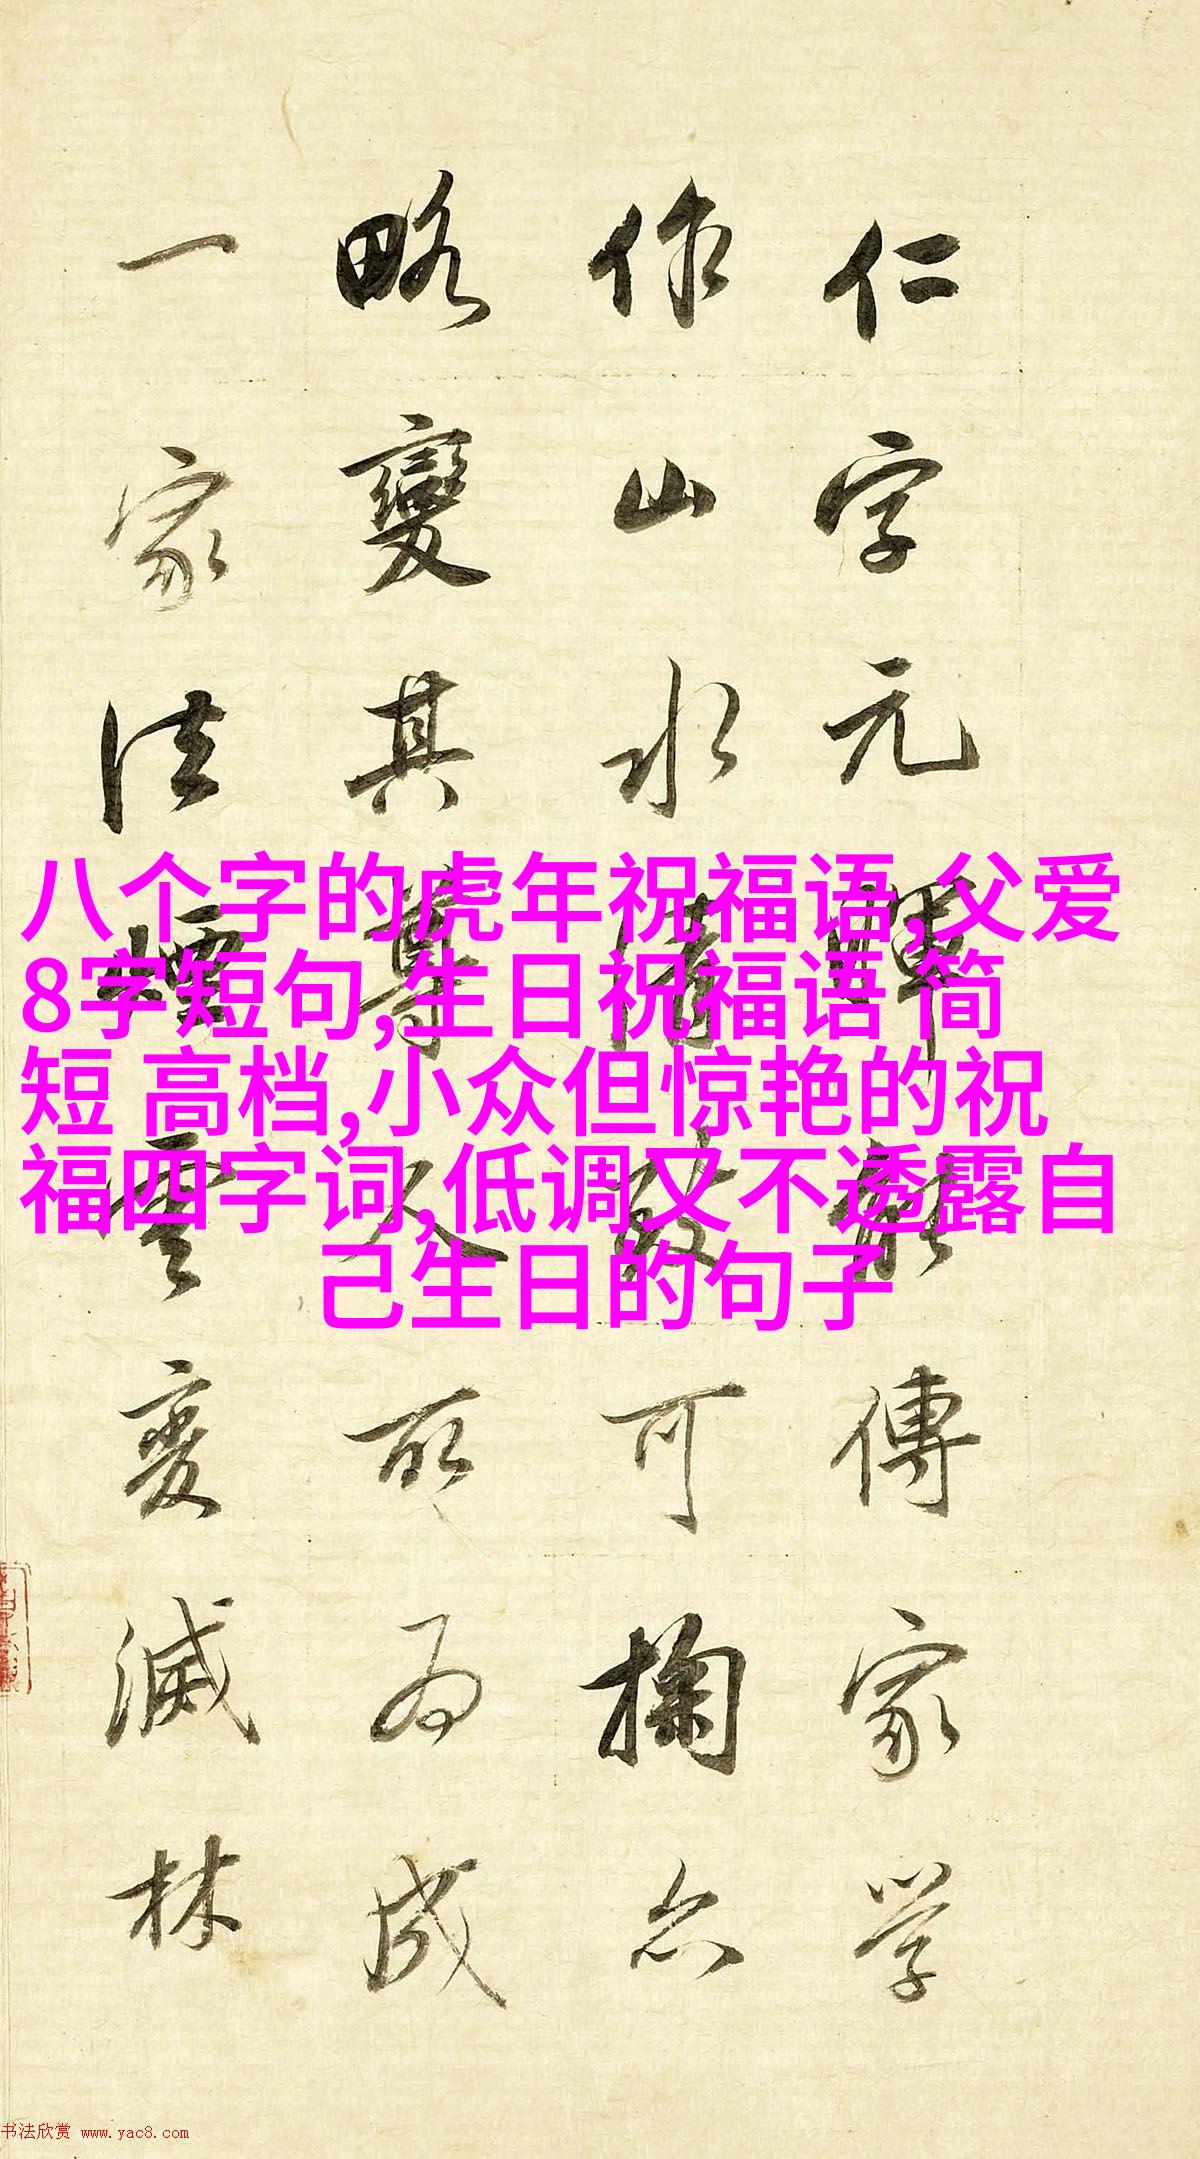 仁字元暉能傳家学
作山水清致可掬亦
略變其尊人所為成
一家法煙雲變滅林
八个字的虎年祝福语,父爱
8字短句,生日祝福语 简
短 高档,小众但惊艳的祝
福四字词,低调又不透露自
己生日的句子
书法欣赏 www.yac8.com